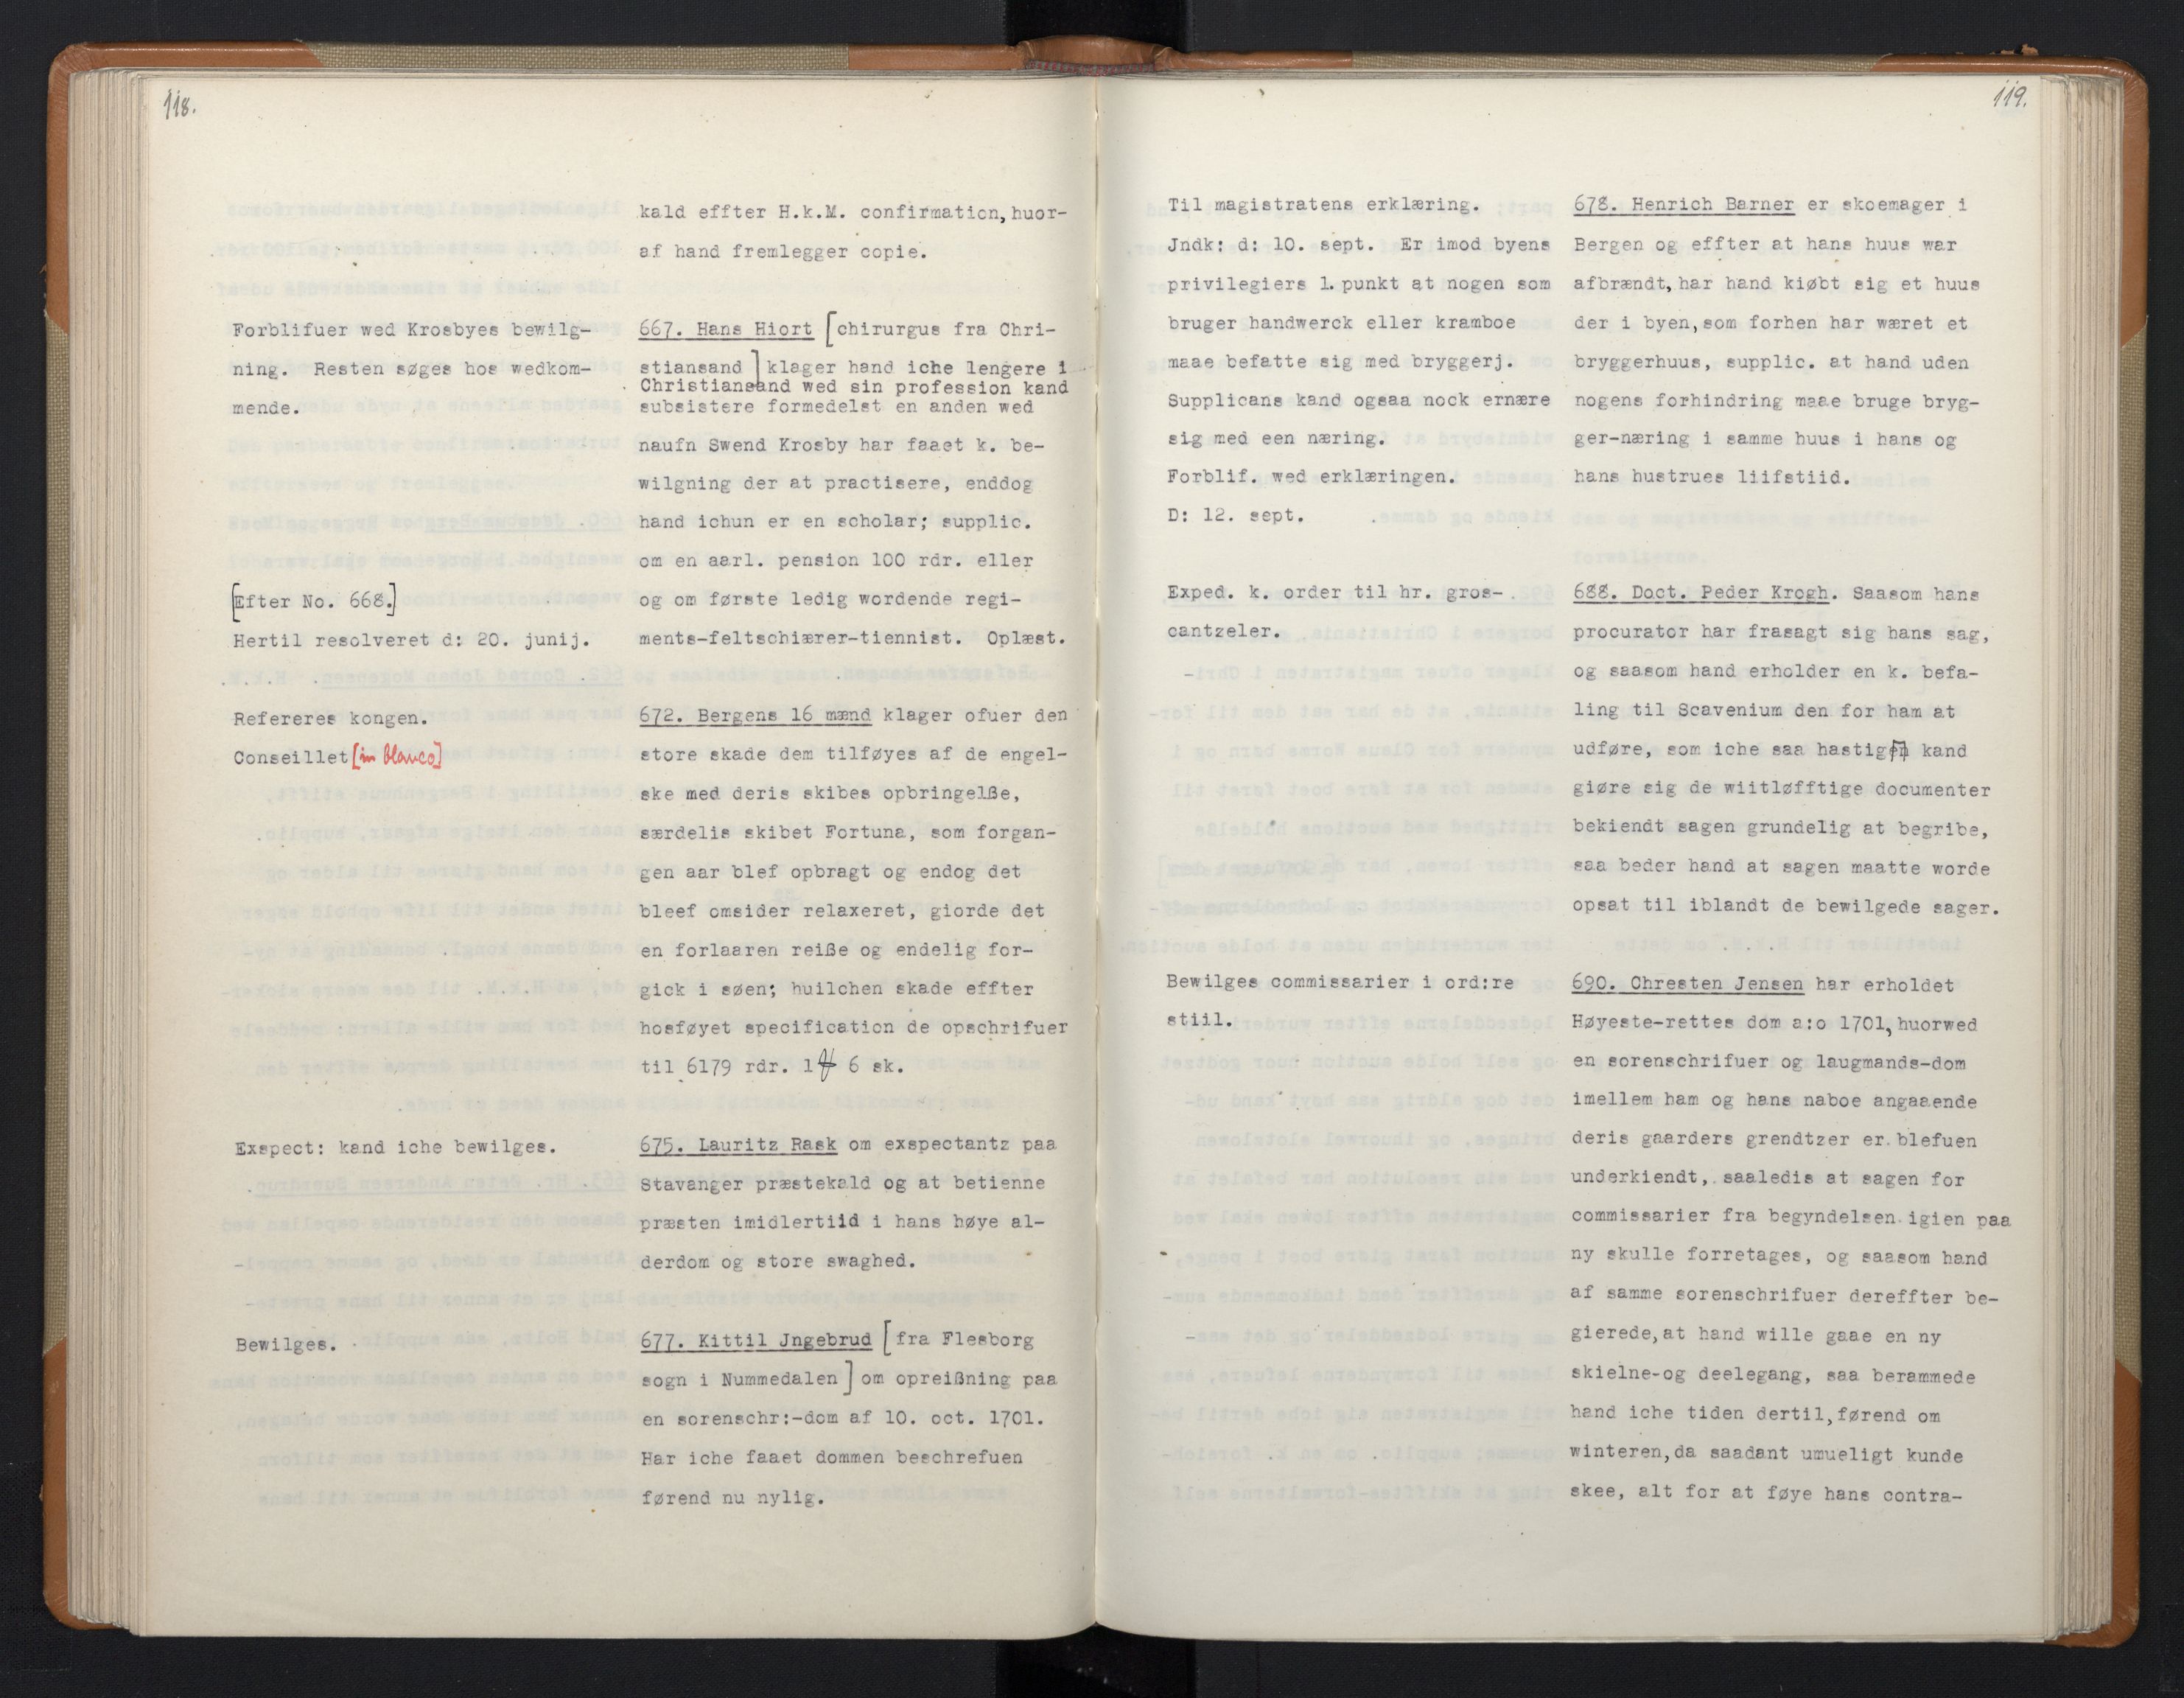 118.
kald effter H.k.M. confirmation, huor-
af hand fremlegger copie.
Forblifuer wed Krosbyes bewilg-
ning. Resten søges hos wedkom-
mende.
667. Hans Hiort [chirurgus fra Chri-
stiansand] klager hand iche lengere i
Christiansand wed sin profession kand
subsistere formedelst en anden wed
naufn Swend Krosby har faaet k. be-
wilgning der at practisere, enddog
hand ichun er en scholar; supplic.
om en aarl. pension 100 rdr. eller
og om første ledig wordende regi-
ments-feltschiærer-tiennist. Oplæst.
[Efter No. 668.]
Hertil resolveret d: 20. junij.
Refereres kongen.
Conseillet [in blanco]
672. Bergens 16 mænd klager ofuer den
store skade dem tilføyes af de engel-
ske med deris skibes opbringelße,
særdelis skibet Fortuna, som forgan-
gen aar blef opbragt og endog det
bleef omsider relaxeret, giorde det
en forlaaren reiße og endelig for-
gick i søen; huilchen skade effter
hosføyet specification de opschrifuer
til 6179 rdr. 1 6 sk.
Exspect: kand iche bewilges.
675. Lauritz Rask om exspectantz paa
Stavanger præstekald og at betienne
præsten imidlertiid i hans høye al-
derdom og store swaghed.
Bewilges.
677. Kittil Jngebrud [fra Flesborg
sogn i Nummedalen] om opreißning paa
en sorenschr:-dom af 10. oct. 1701.
Har iche faaet dommen beschrefuen
førend nu nylig.
119.
Til magistratens erklæring.
Jndk: d: 10. sept. Er imod byens
privilegiers 1. punkt at nogen som
bruger handwerck eller kramboe
maae befatte sig med bryggerj.
Supplicans kand ogsaa nock ernære
sig med een næring.
Forblif. wed erklæringen.
D: 12. sept.
678. Henrich Barner er skoemager i
Bergen og effter at hans huus war
afbrændt, har hand kiøbt sig et huus
der i byen, som forhen har wæret et
bryggerhuus, supplic. at hand uden
nogens forhindring maae bruge bryg-
ger-næring i samme huus i hans og
hans hustrues liifstiid.
Exped. k. order til hr. gros-
cantzeler.
688. Doct. Peder Krogh. Saasom hans
procurator har frasagt sig hans sag,
og saasom hand erholder en k. befa-
ling til Scavenium den for ham at
udføre, som iche saa hastig kand
giøre sig de wiitløfftige documenter
bekiendt sagen grundelig at begribe,
saa beder hand at sagen maatte worde
opsat til iblandt de bewilgede sager.
Bewilges commissarier i ord:re
stiil.
690. Chresten Jensen har erholdet
Høyeste-rettes dom a:o 1701, huorwed
en sorenschrifuer og laugmands-dom
imellem ham og hans naboe angaaende
deris gaarders grendtzer er blefuen
underkiendt, saaledis at sagen for
commissarier fra begyndelsen igien paa
ny skulle forretages, og saasom hand
af samme sorenschrifuer dereffter be-
gierede, at hand wille gaae en ny
skielne-og deelegang, saa berammede
hand iche tiden dertil, førend om
winteren, da saadant umueligt kunde
skee, alt for at føye hans contra-